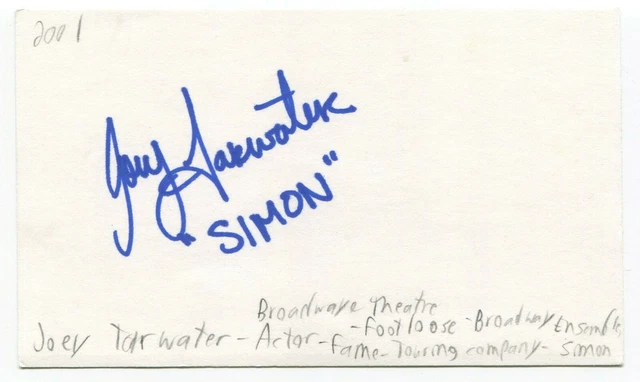 2001
Joey Tarwater
"SIMON"
Broadwave Theatre
Joey Tarwater - Actor - Footloose - Broadway Ensemble,
Fame - Touring company - Simon